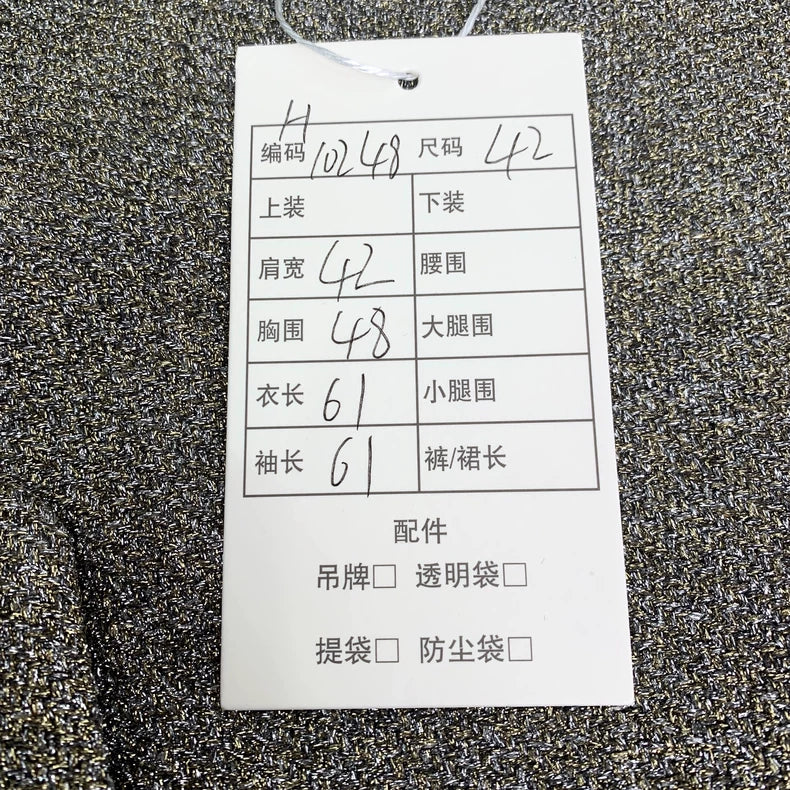 H
编码 10248 尺码 42
上装 下装
肩宽 42 腰围
胸围 48 大腿围
衣长 61 小腿围
袖长 61 裤/裙长
配件
吊牌□ 透明袋□
提袋□ 防尘袋□